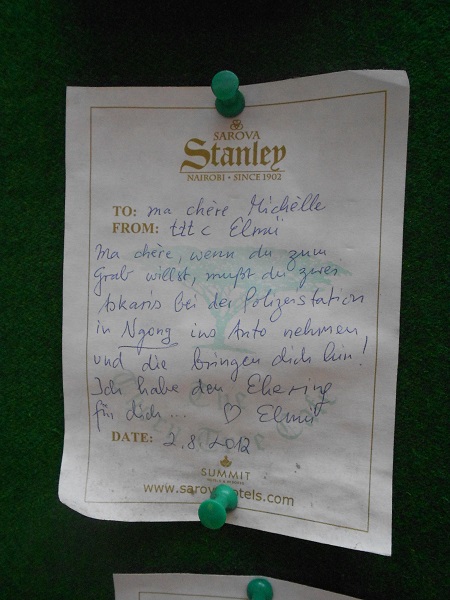 SAROVA
Stanley
NAIROBI • SINCE 1902
TO: ma chère Michèlle
FROM: ttt c Elmü
Ma chère, wenn du zum
Grab willst, mußt du zwei
Askaris bei der Polizeistation
in Ngong ins Auto nehmen
und die bringen dich hin!
Ich habe den Ehering
für dich... ♡ Elmü
DATE: 2.8.2012
SUMMIT
www.sarovahotels.com